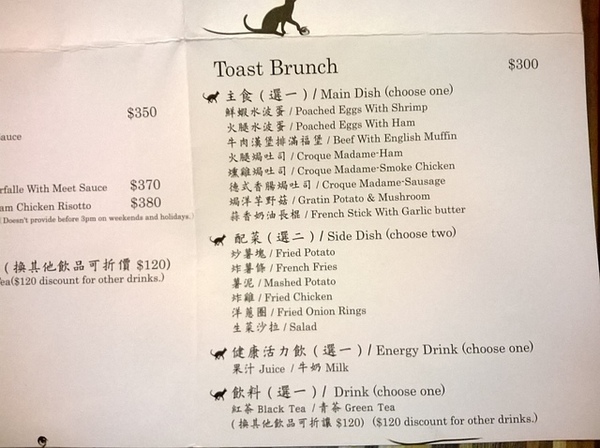 $350
auce
rfalle With Meet Sauce $370
am Chicken Risotto $380
Doesn't provide before 3pm on weekends and holidays.
(換其他飲品可折價 $120)
ea($120 discount for other drinks.)
Toast Brunch $300
主食 (選一) / Main Dish (choose one)
鮮蝦水波蛋 / Poached Eggs With Shrimp
火腿水波蛋 / Poached Eggs With Ham
牛肉漢堡排滿福堡 / Beef With English Muffin
火腿焗吐司 / Croque Madame-Ham
燻雞焗吐司 / Croque Madame-Smoke Chicken
德式香腸焗吐司 / Croque Madame-Sausage
焗洋芋野菇 / Gratin Potato & Mushroom
蒜香奶油長棍 / French Stick With Garlic butter
配菜 (選二) / Side Dish (choose two)
炒薯塊 / Fried Potato
炸薯條 / French Fries
薯泥 / Mashed Potato
炸雞 / Fried Chicken
洋蔥圈 / Fried Onion Rings
生菜沙拉 / Salad
健康活力飲 (選一) / Energy Drink (choose one)
果汁 Juice / 牛奶 Milk
飲料 (選一) / Drink (choose one)
紅茶 Black Tea / 青茶 Green Tea
(換其他飲品可折讓 $120) ($120 discount for other drinks.)